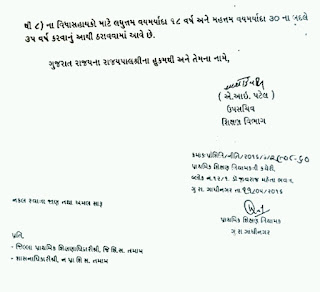 થી ૮) ના વિદ્યાસહાયકો માટે લઘુત્તમ વયમર્યાદા ૧૮ વર્ષ અને મહત્તમ વયમર્યાદા ૩૦ ના બદલે
૩૫ વર્ષ કરવાનું આથી ઠરાવવામાં આવે છે.
ગુજરાત રાજ્યના રાજ્યપાલશ્રીના હુકમથી અને તેમના નામે,
( એ.આઇ. પટેલ )
ઉપસચિવ
શિક્ષણ વિભાગ
પ્રાથમિક શિક્ષણ નિયામકની કચેરી,
બ્લોક નં.૧૨/૧ ડૉ જીવરાજ મહેતા ભવન,
ગુ.રા. ગાંધીનગર તા ૧૧/૦૫/૨૦૧૬
નકલ રવાના જાણ તથા અમલ સારૂ
પ્રાથમિક શિક્ષણ નિયામક
ગુ રા ગાંધીનગર
પ્રતિ,
- જિલ્લા પ્રાથમિક શિક્ષણાધિકારીશ્રી, જિ શિ સ. તમામ
- શાસનાધિકારીશ્રી, ન પ્રા શિ સ. તમામ